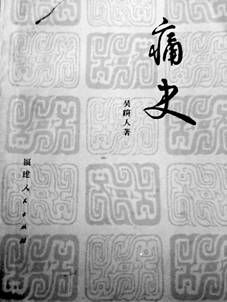 痛史
吴趼人著
福建人民出版社